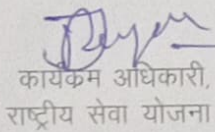 कार्यक्रम अधिकारी,
राष्ट्रीय सेवा योजना